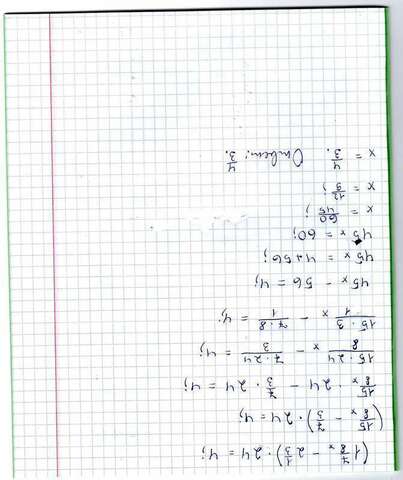 (1 7/8 x - 2 1/3) · 24 = 4;
(15/8 x - 7/3) · 24 = 4;
15/8 x · 24 - 7/3 · 24 = 4;
15·24/8 x - 7·24/3 = 4;
15·3/1 x - 7·8/1 = 4;
45x - 56 = 4;
45x = 4+56;
45x = 60;
x = 60/45;
x = 12/9;
x = 4/3. Ответ: 4/3.